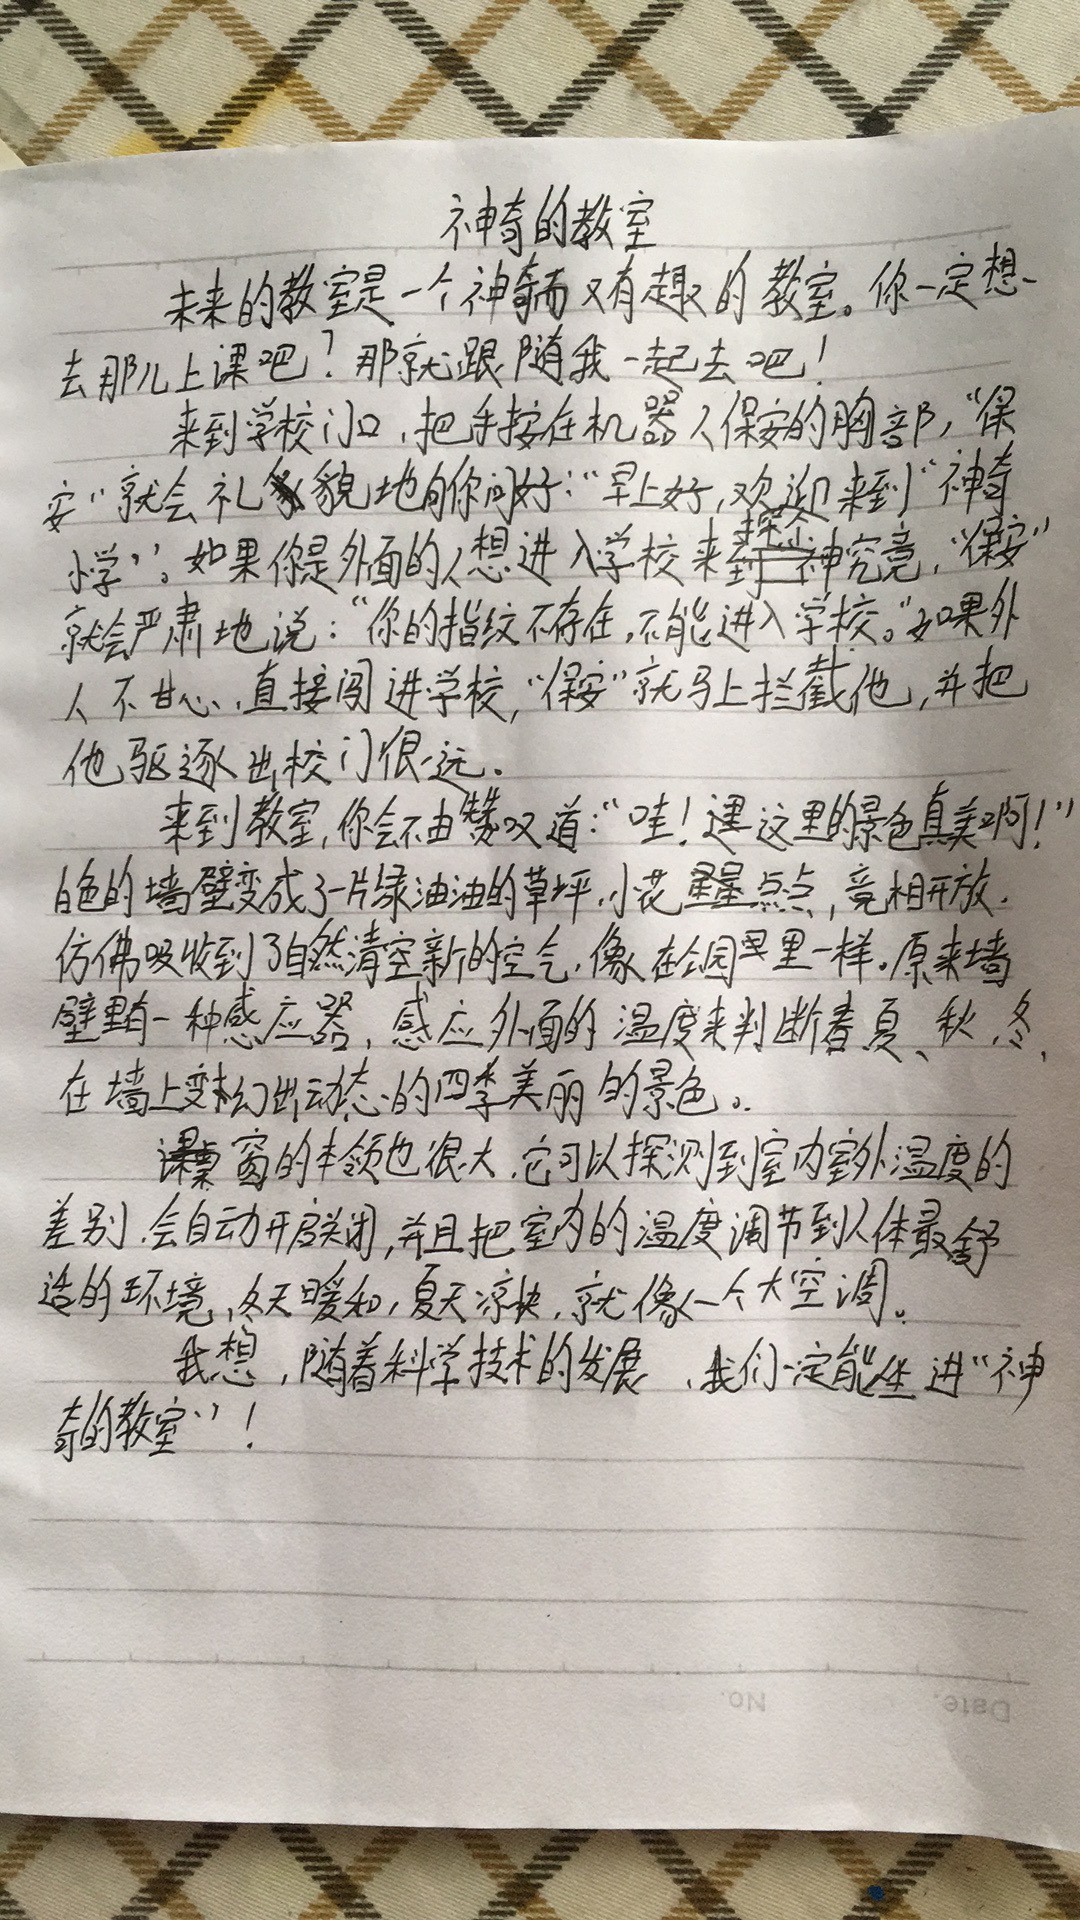 神奇的教室
未来的教室是一个神奇而又有趣的教室。你一定想
去那儿上课吧？那就跟随我一起去吧！
来到学校门口，把手按在机器人保安的胸部，“保
安”就会礼貌地向你问好：“早上好，欢迎来到“神奇
小学”。如果你是外面的人想进入学校来探个究竟，“保安”
就会严肃地说：“你的指纹不存在，不能进入学校。”如果外
人不甘心，直接闯进学校，“保安”就马上拦截他，并把
他驱逐出校门很远。
来到教室，你会不由赞叹道：“哇！这里的景色真美啊！”
白色的墙壁变成了一片绿油油的草坪，小花星星点点，竞相开放，
仿佛吸收到了自然清新的空气，像在公园里一样。原来墙
壁里有一种感应器，感应外面的温度来判断春、夏、秋、冬，
在墙上变幻出动态的四季美丽的景色。
窗的本领也很大，它可以探测到室内室外温度的
差别，会自动开启关闭，并且把室内的温度调节到人体最舒
适的环境，冬天暖和，夏天凉快，就像一个大空调。
我想，随着科学技术的发展，我们一定能坐进“神
奇的教室”！
No.
Date.